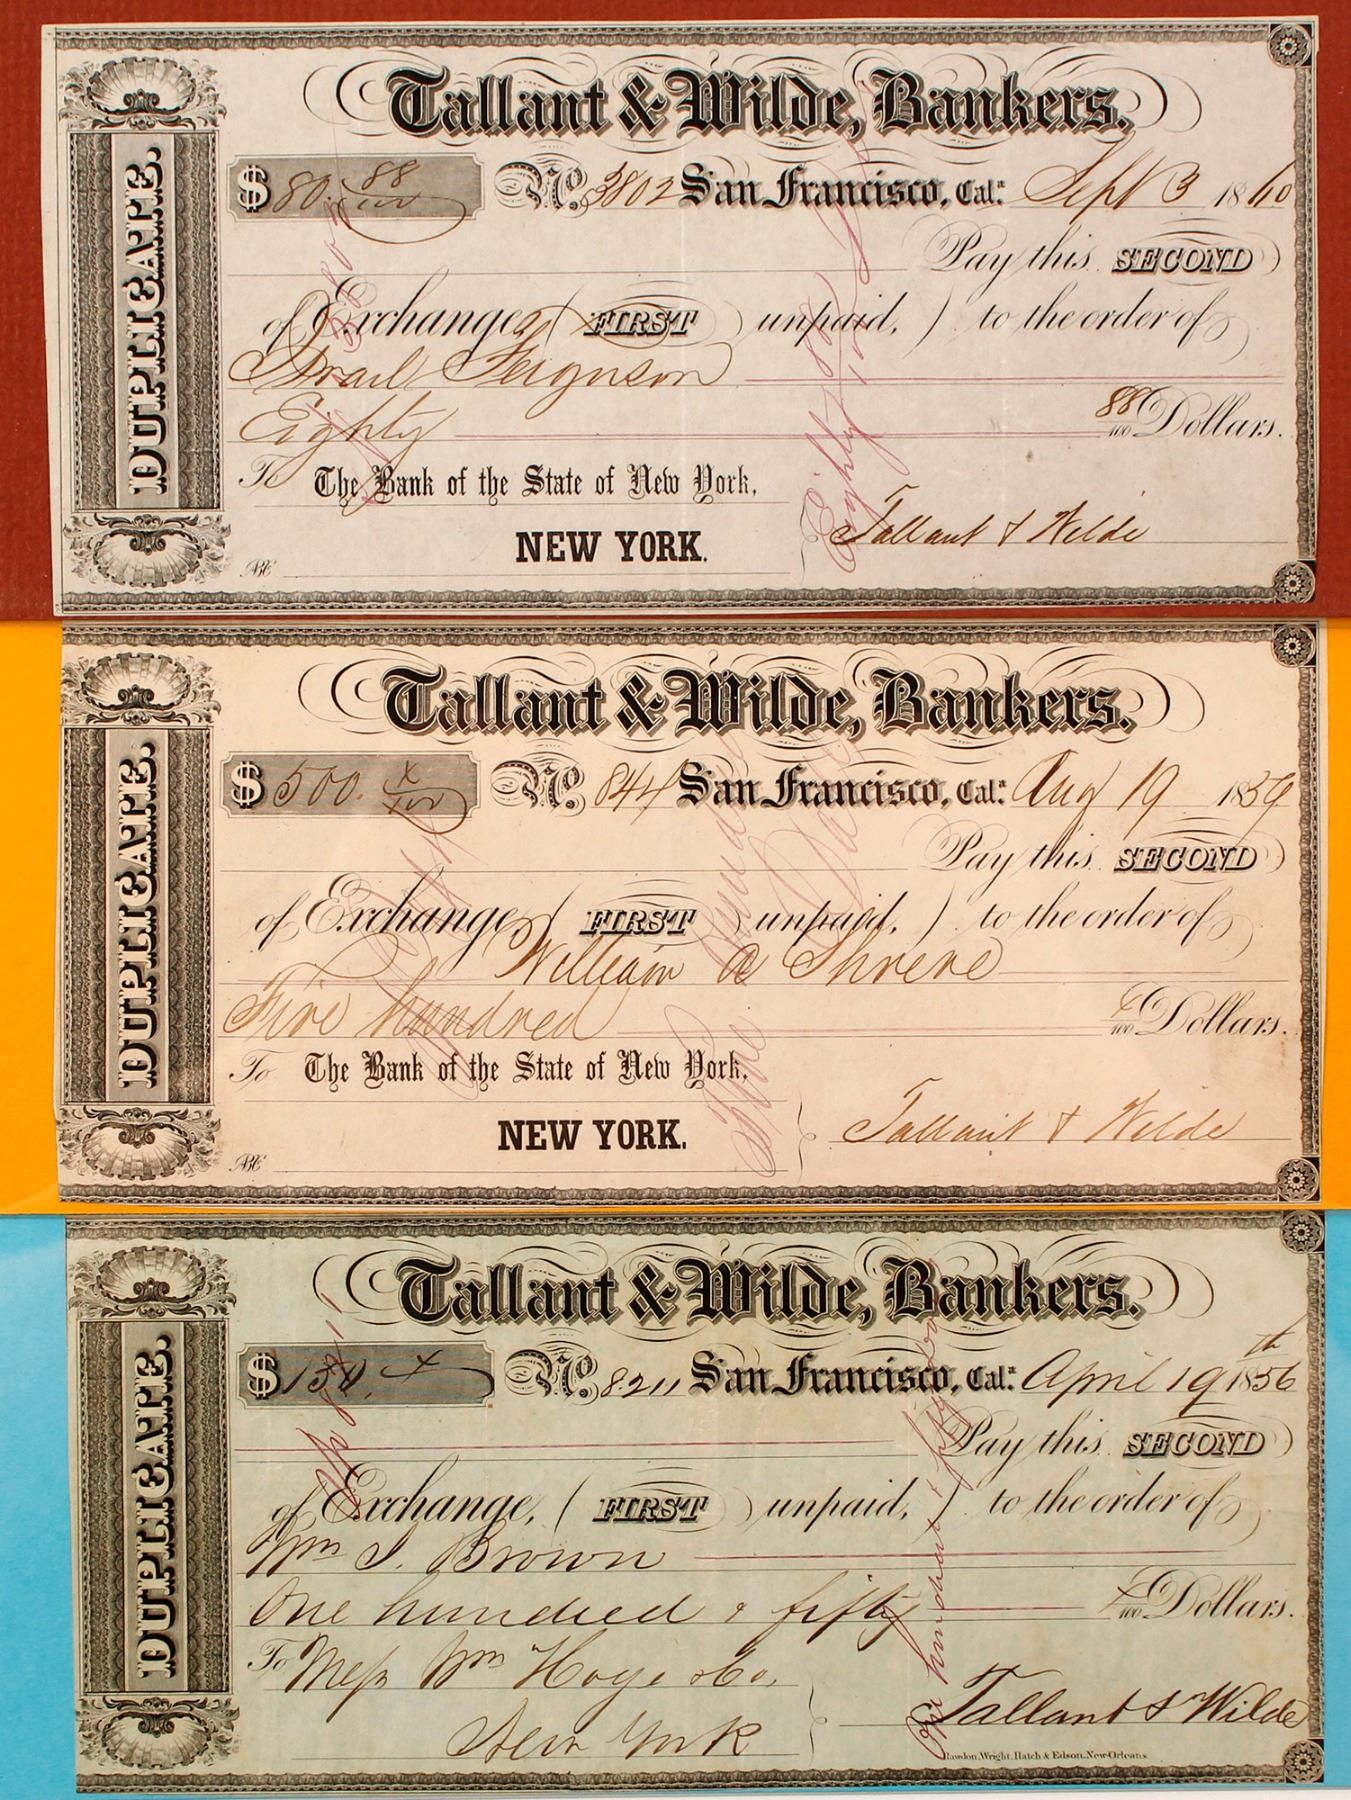 Tallant & Wilde, Bankers.
DUPLICATE.
$ 80. 88/100 No. 3802 San Francisco, Cal: Sept 3 1860
Pay this SECOND
of Exchange, ( FIRST unpaid, ) to the order of
Israel Ferguson
Eighty 88/100 Dollars.
To The Bank of the State of New York,
NEW YORK.
Tallant & Wilde
No 3802
Eighty 88/100 Dollars
Tallant & Wilde, Bankers.
DUPLICATE.
$ 500. x/100 No. 844 San Francisco, Cal: Aug 19 1859
Pay this SECOND
of Exchange, ( FIRST unpaid, ) to the order of
William A Shreve
Five hundred x/100 Dollars.
To The Bank of the State of New York,
NEW YORK.
Tallant & Wilde
Five Hundred Dollars
Tallant & Wilde, Bankers.
DUPLICATE.
$ 150. x No. 8211 San Francisco, Cal: April 19th 1856
Pay this SECOND
of Exchange, ( FIRST unpaid, ) to the order of
Wm J. Brown
One hundred & fifty x/100 Dollars.
To Mess Wm Hoge & Co.
New York
Tallant & Wilde
No 8211
One hundred & fifty Dollars
Rawdon, Wright, Hatch & Edson, New-Orleans.